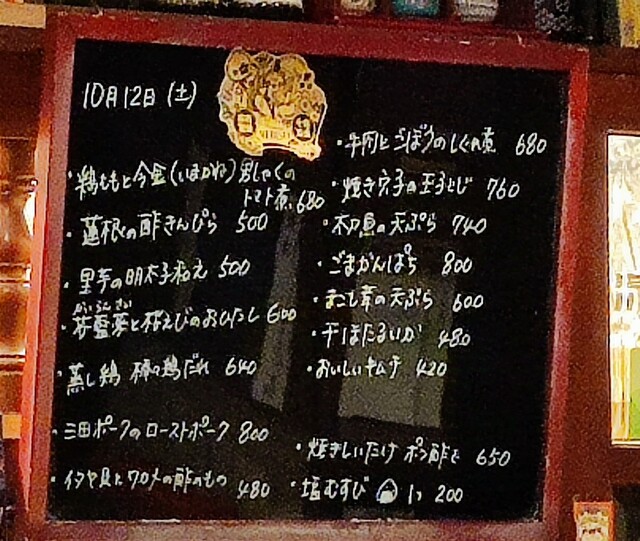 10月12日(土)
・鶏ももと今金(いまかね)男しゃくの
トマト煮 680
・蓮根の酢きんぴら 500
・里芋の明太子和え 500
・芥藍菜と桜えびのおひたし 600
・蒸し鶏 棒々鶏だれ 640
・三田ポークのローストポーク 800
・イタヤ貝とワカメの酢のもの 480
・牛肉とごぼうのしぐれ煮 680
・焼き穴子の玉子とじ 760
・太刀魚の天ぷら 740
・ごまかんぱち 800
・まこも茸の天ぷら 600
・干ほたるいか 480
・おいしいキムチ 420
・焼きしいたけ ポン酢で 650
・塩むすび 1ヶ 200